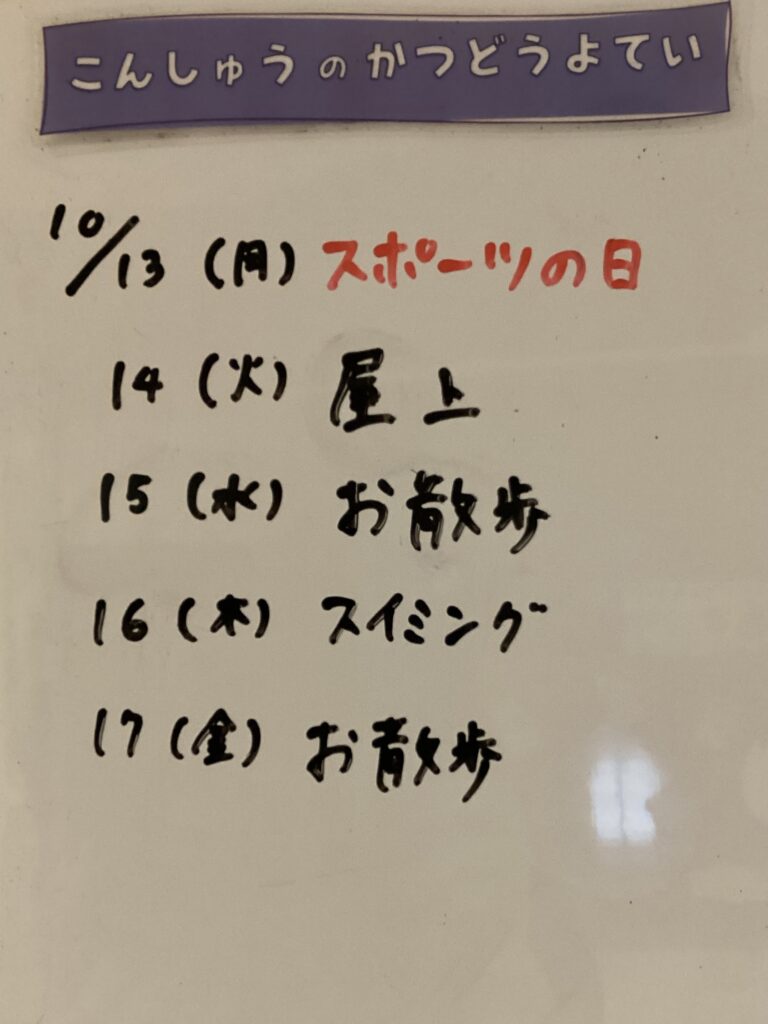 こんしゅうのかつどうよてい
10/13(月)スポーツの日
14(火)屋上
15(水)お散歩
16(木)スイミング
17(金)お散歩